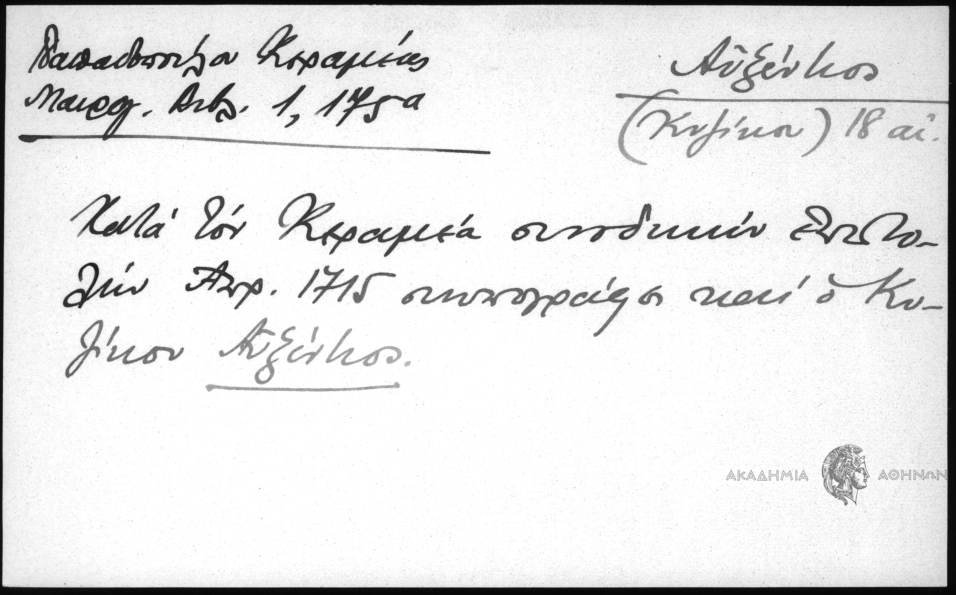 Παπαδοπούλου Κεραμέως
Μαυρογ. Βιβ. 1, 175α
Αὐξέντιος
(Κυζίκου) 18 αἰ.
Κατά τόν Κεραμέα συνοδικήν ἐπιστο-
λήν Ἀπρ. 1715 συνυπογράφει καί ὁ Κυ-
ζίκου Αὐξέντιος.
ΑΚΑΔΗΜΙΑ ΑΘΗΝΩΝ